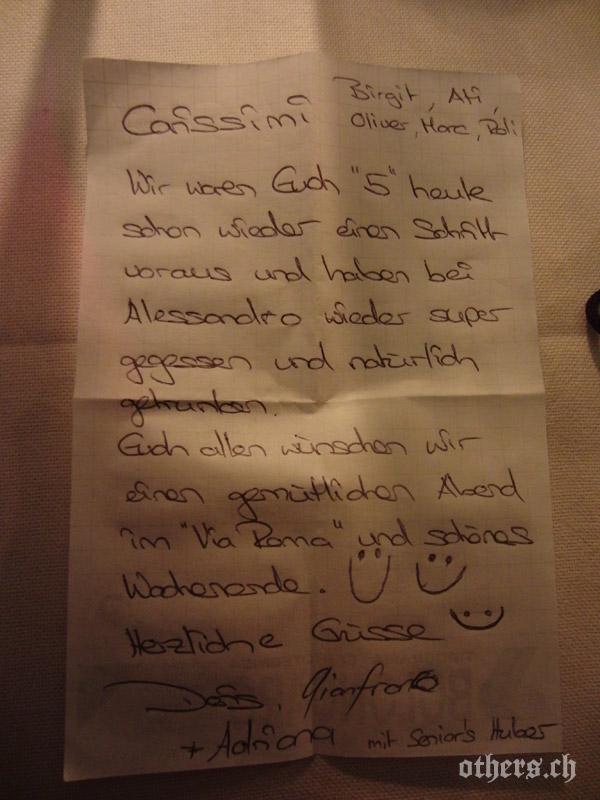 Carissimi Birgit, Ati,
Oliver, Marc, Poli
Wir waren Euch "5" heute
schon wieder einen Schritt
voraus und haben bei
Alessandro wieder super
gegessen und natürlich
getrunken.
Euch allen wünschen wir
einen gemütlichen Abend
im "Via Roma" und schönes
Wochenende.
Herzliche Grüsse
Doris, Gianfranco
+ Adriana mit Senior's Huber
others.ch